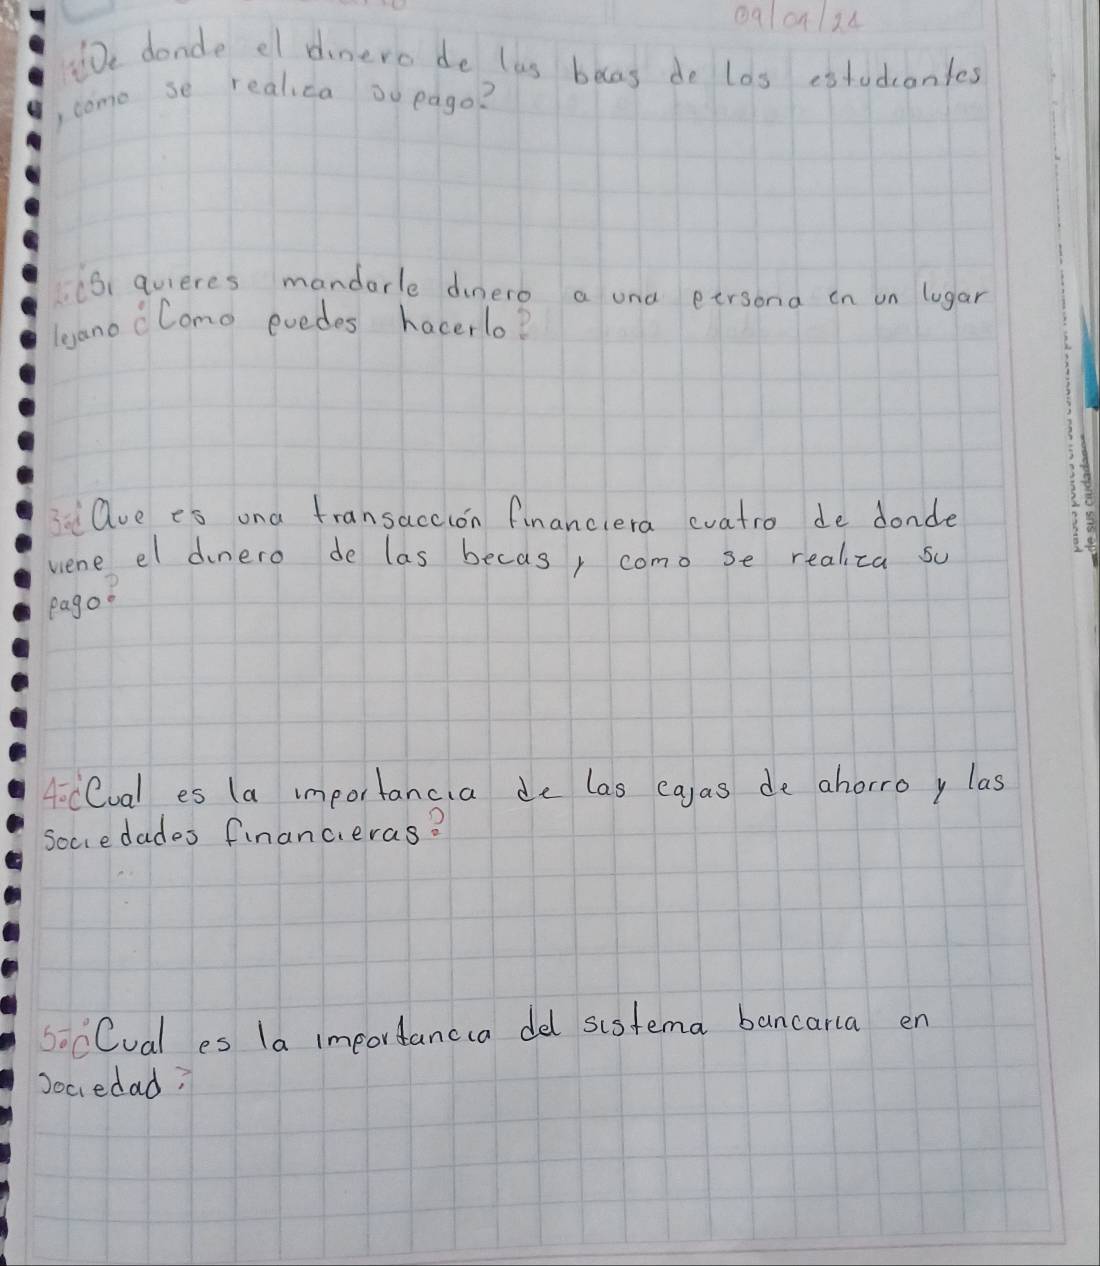 09/09/24
¿De donde el dinero de las becas de los estudiantes
, como se realiza su pago?
¿Si quieres mandarle dinero a una persona en un lugar
lejano ¿Como puedes hacerlo?
3.-¿Que es una transacción financiera cuatro de donde
viene el dinero de las becas, como se realiza su
pago?
4.-¿Cual es la importancia de las cajas de ahorro y las
sociedades financieras?
5.-¿Cual es la importancia del sistema bancaria en
sociedad?
de sus ciudadanos